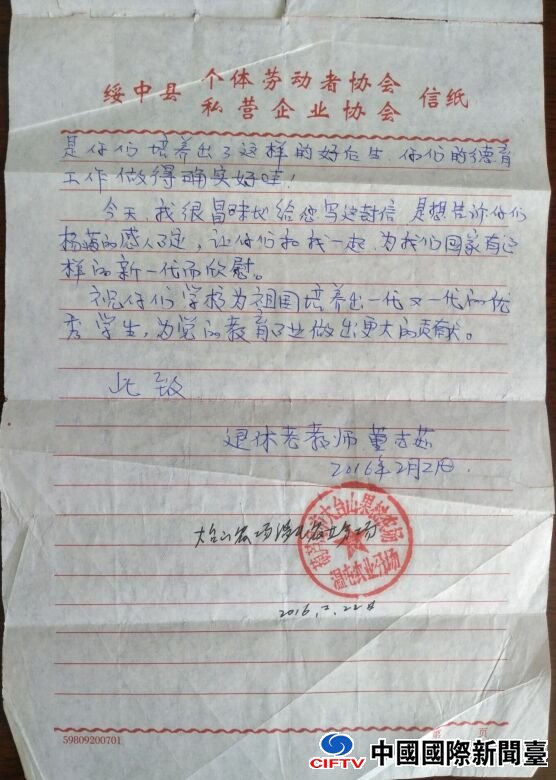 绥中县 个体劳动者协会 信纸
私营企业协会
是你们培养出了这样的好后生，你们的德育
工作做得确实好哇！
今天，我很冒昧地给您写这封信，是想告诉你们
杨 的感人事迹，让你们和我一起，为我们国家有这
样的新一代而欣慰。
祝你们学校为祖国培养出一代又一代的优
秀学生，为党的教育事业做出更大的贡献。
此致
退休老教师 董志茹
2016年2月21日
大台山农场温屯农业分场
大台山果树农场
温屯农业分场
2016.2.22日
59809200701
第 页
CIFTV 中國國際新聞臺